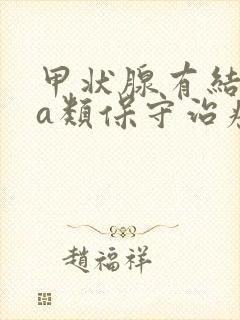 甲状腺有結
a類保守治
趙福祥